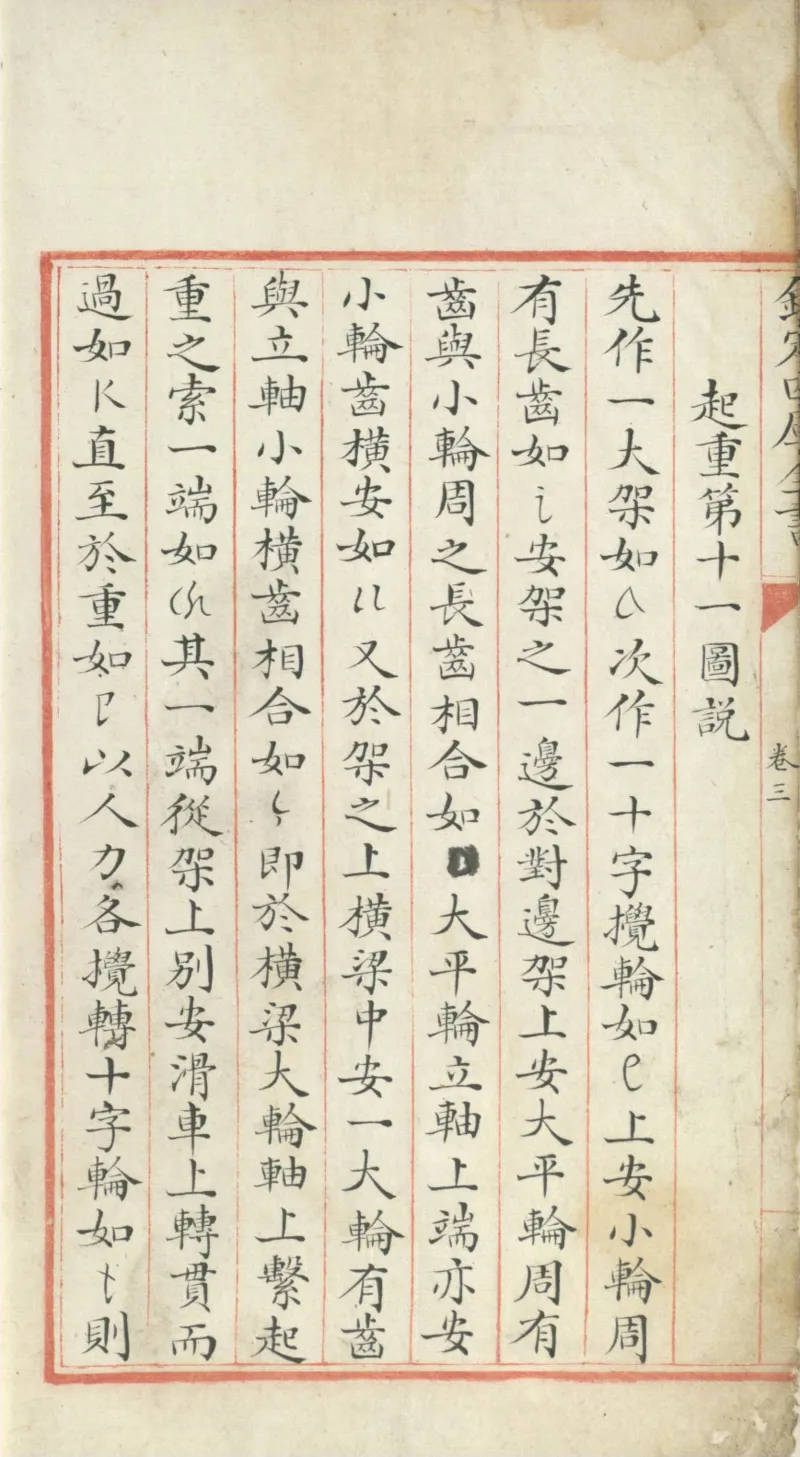 欽定四庫全書
卷三
起重第十一圖説
先作一大架如次作一十字攪輪如上安小輪周
有長齒如安架之一邊於對邊架上安大平輪周有
齒與小輪周之長齒相合如大平輪立軸上端亦安
小輪齒橫安如又於架之上橫梁中安一大輪有齒
與立軸小輪橫齒相合如即於橫梁大輪軸上繫起
重之索一端如其一端從架上別安滑車上轉貫而
過如直至於重如以人力各攪轉十字輪如則